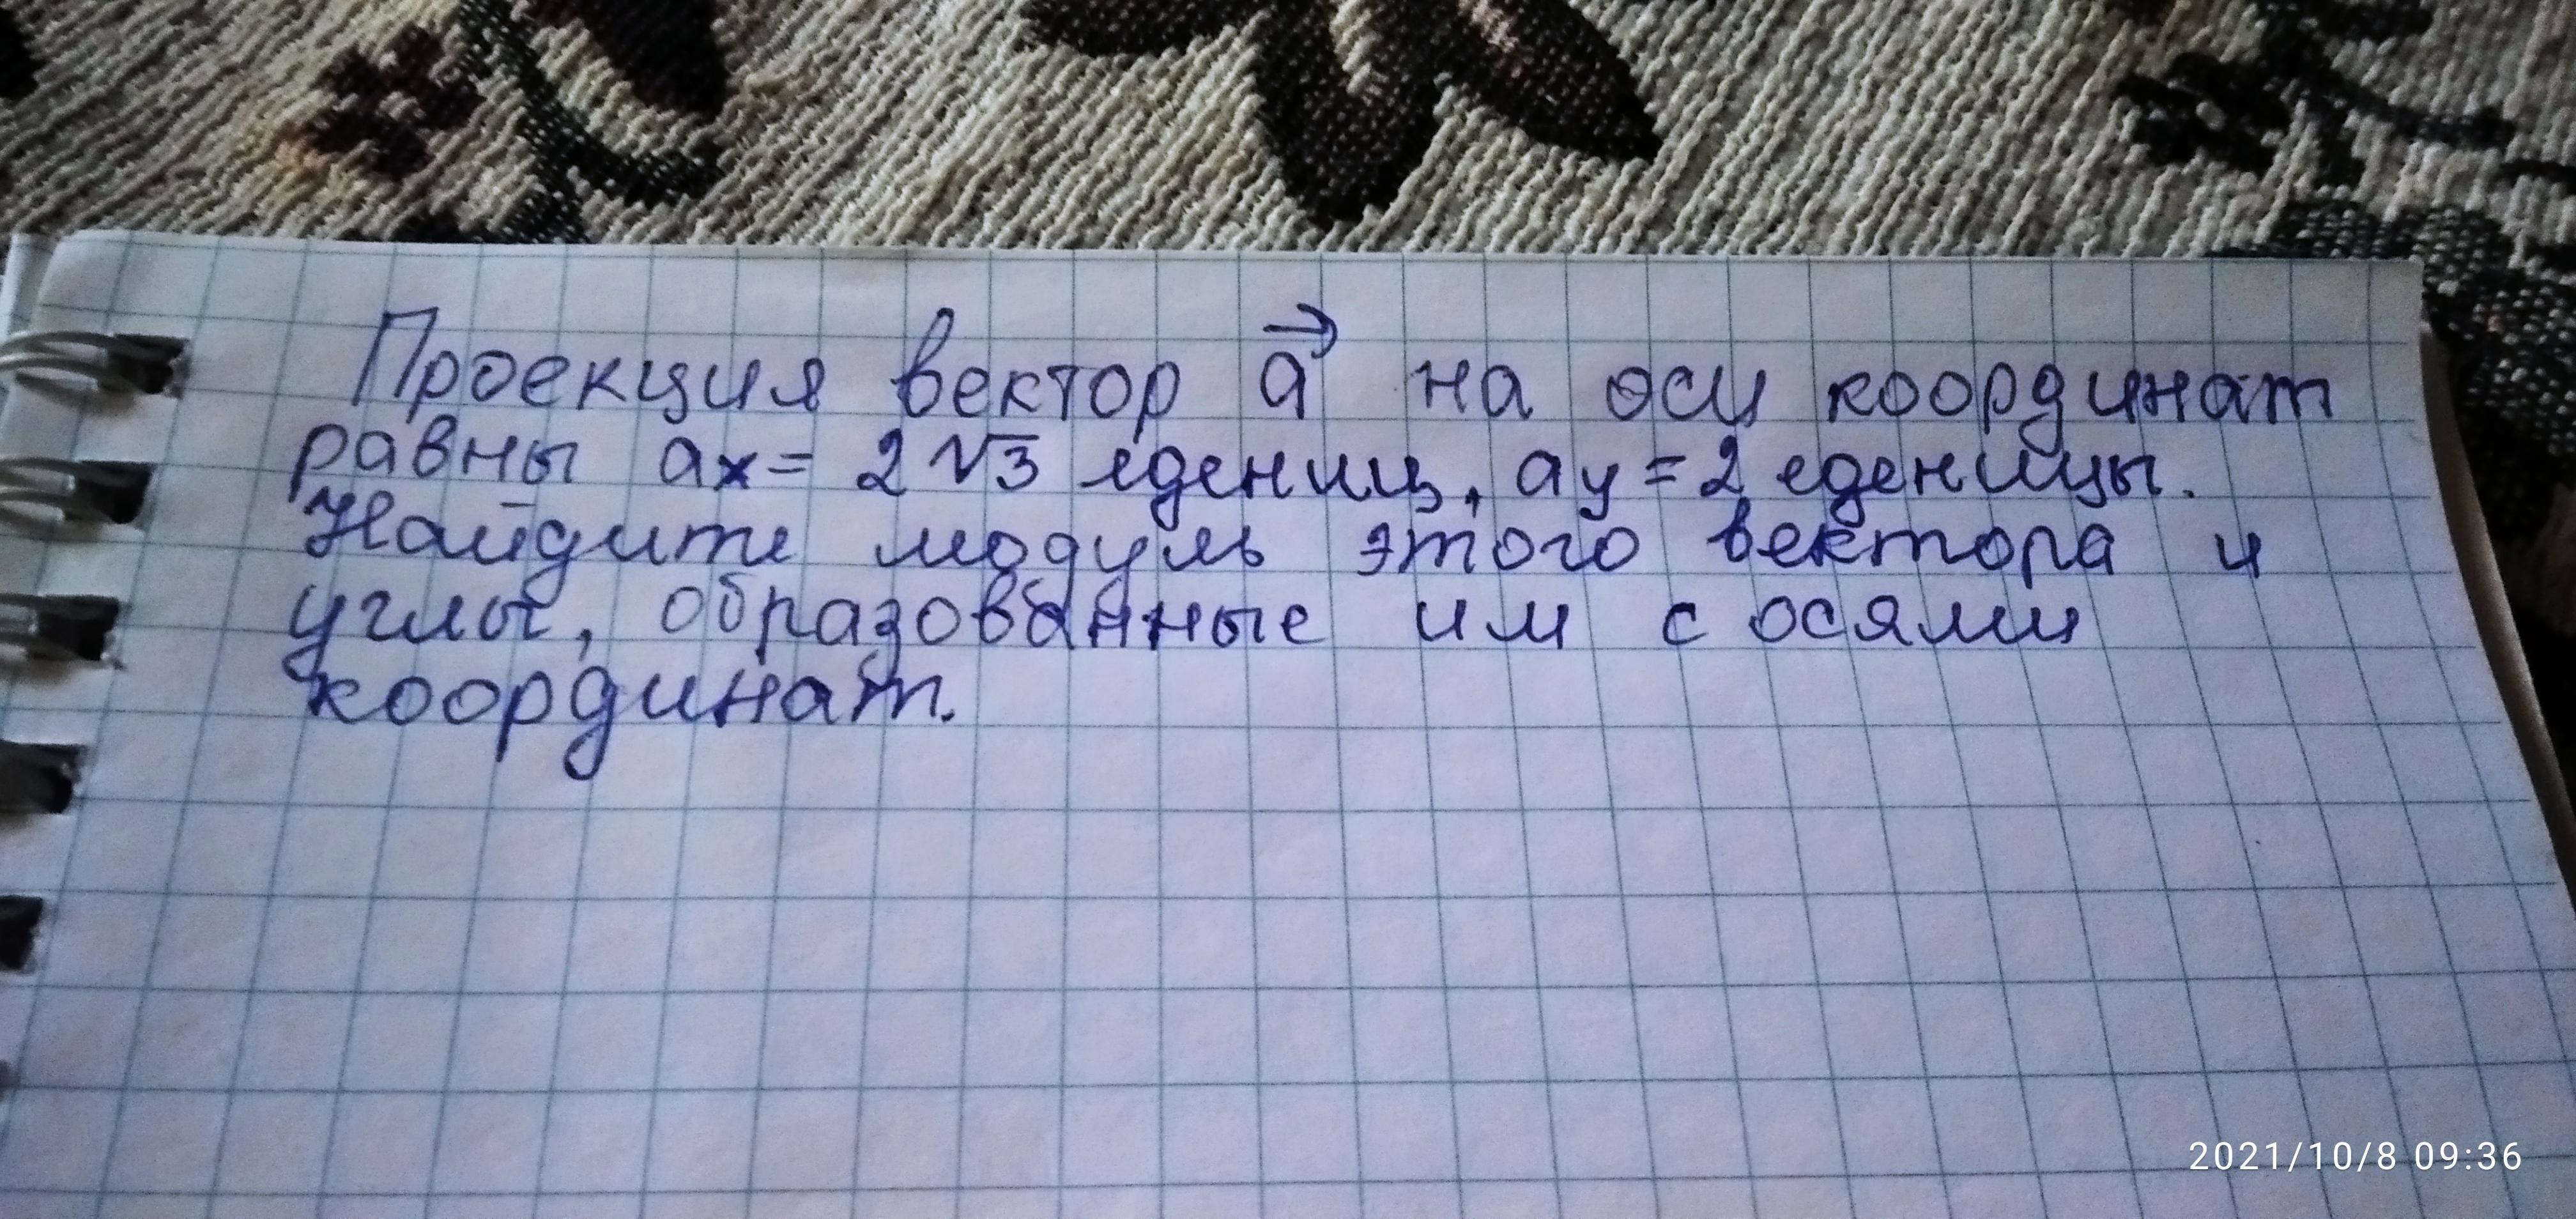 Проекция вектор a⃗ на оси координат
равны ax = 2√3 едениц, ay = 2 еденицы.
Найдите модуль этого вектора и
углы, образованные им с осями
координат.
2021/10/8 09:36